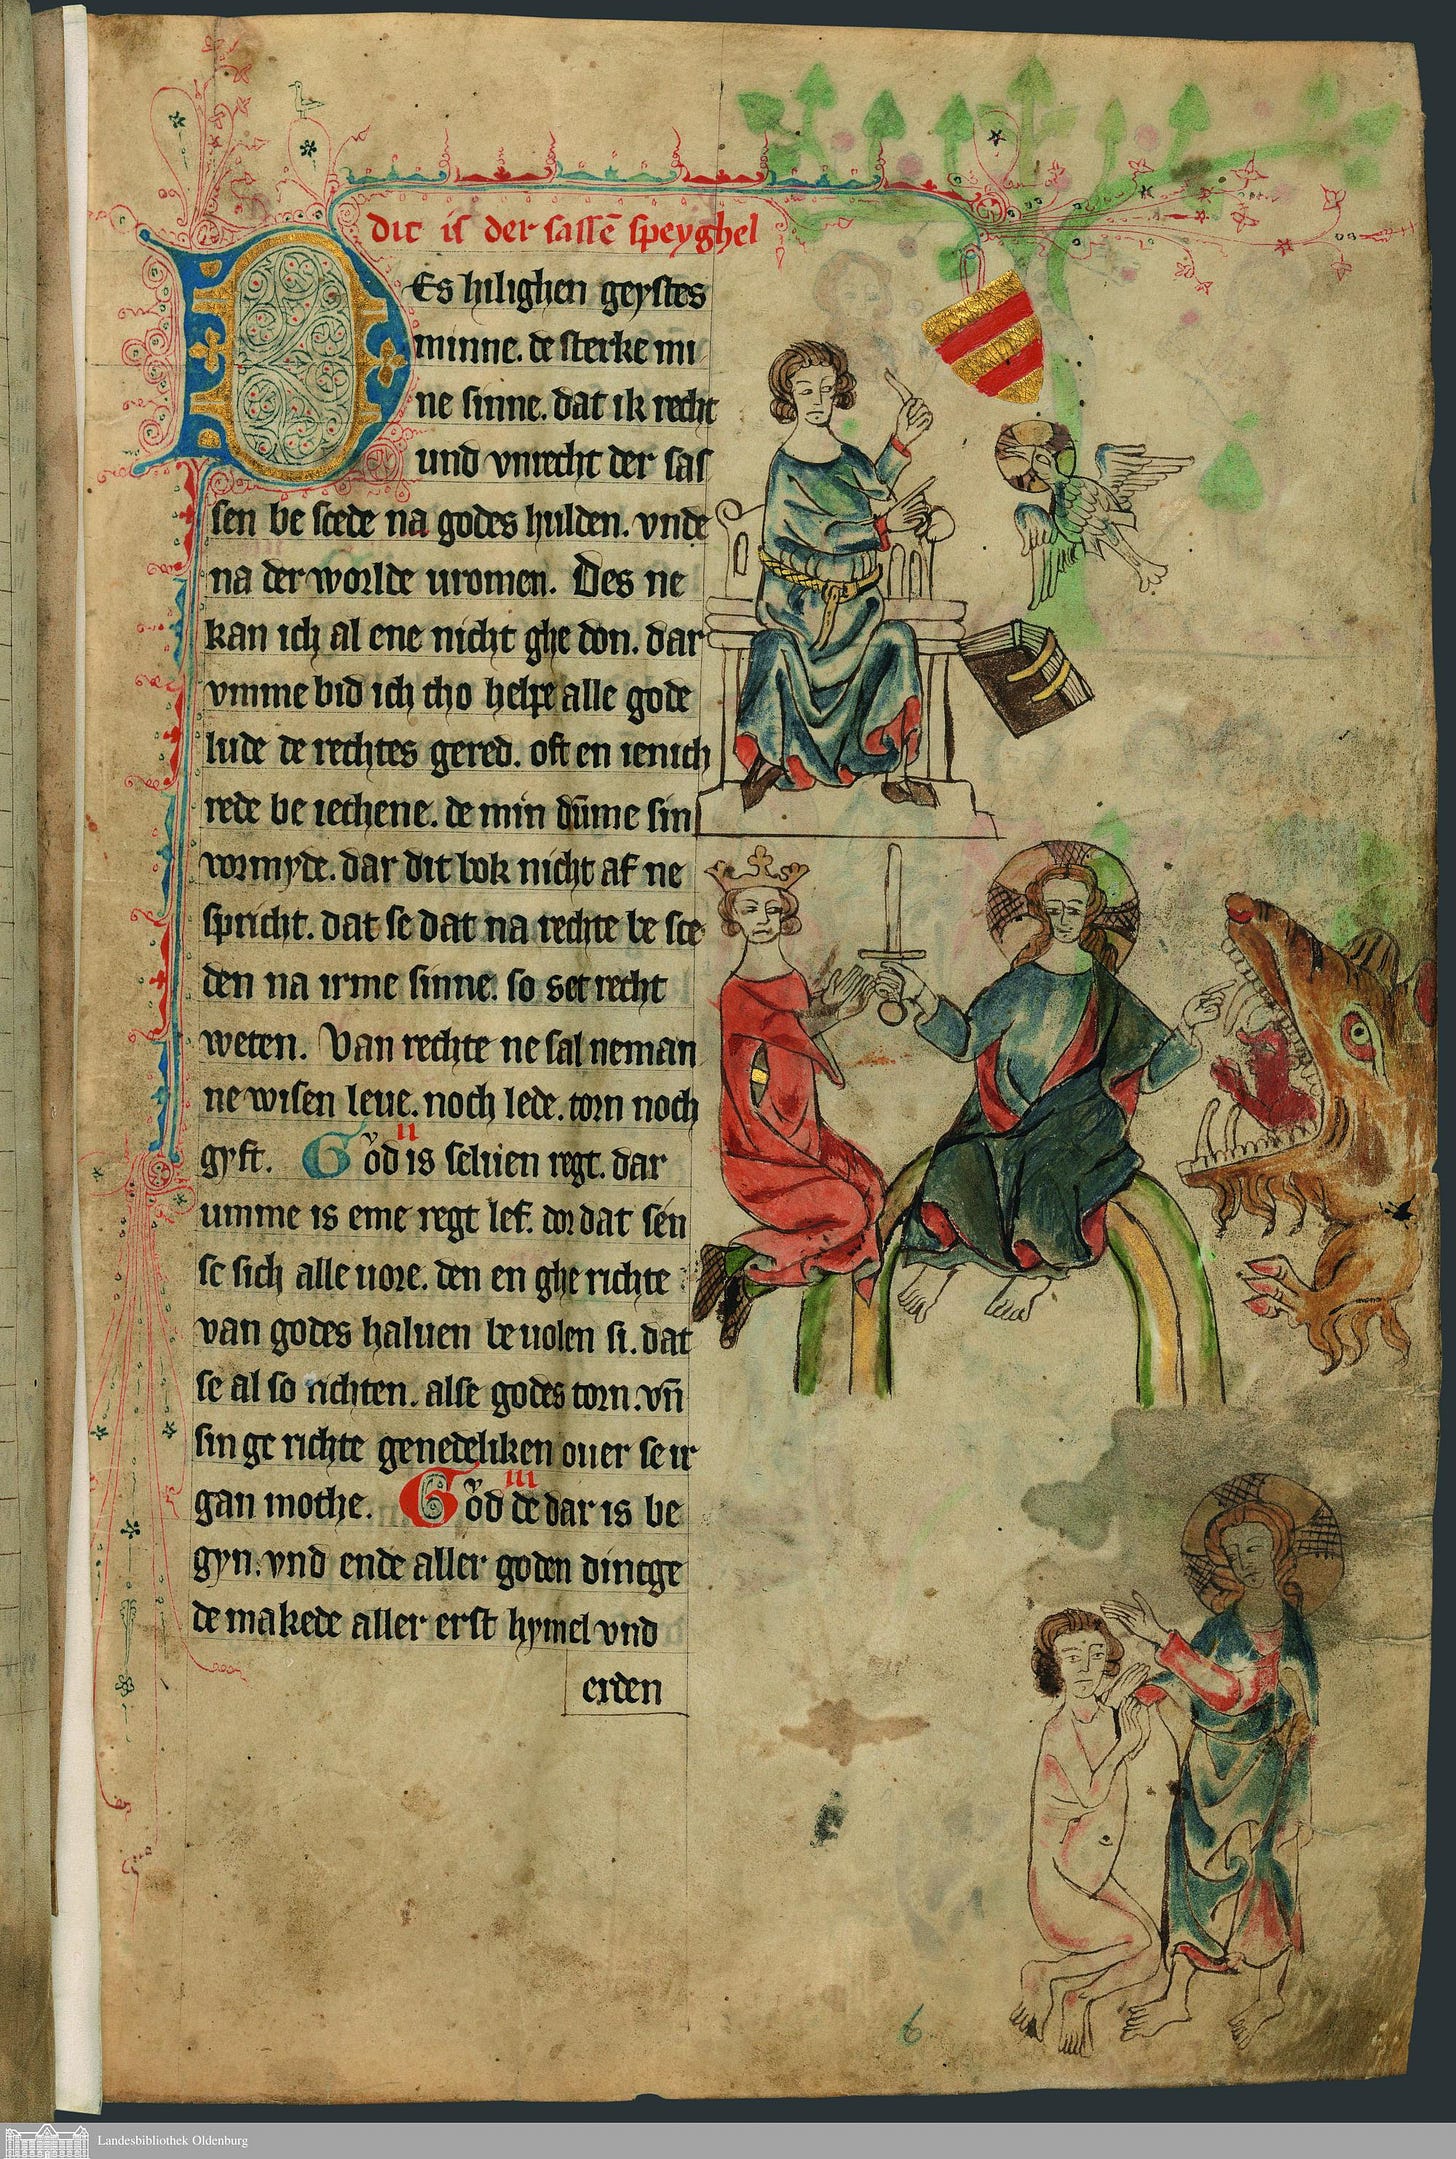 dit is der sassē speyghel
DEs hilighen geystes
minne. de sterke mi
ne sinne. dat ik recht
und vnrecht der sas
sen be stede na godes hulden. vnde
na der worlde uromen. Des ne
kan ich al ene nicht ghe don. dar
vmme bid ich tho helpe alle gode
lude de rechtes gered. oft en ienich
rede be iechene. de min dūme sin
vormyde. dar dit bok nicht af ne
spricht. dat se dat na rechte be sce
den na irme sinne. so set recht
weten. Van rechte ne sal neman
ne wisen leue. noch lede. torn noch
gyft. God is seluen regt. dar
ii
umme is eme regt lef. dor dat sen
se sich alle uore. den en ghe richte
van godes haluen be uolen si. dat
se al so richten. alse godes torn. vn̄
sin ge richte genedeliken ouer se ir
gan mothe. God de dar is be
iii
gyn. vnd ende aller goden dintge
de makede aller erst hymel vnd
erden
6
Landesbibliothek Oldenburg